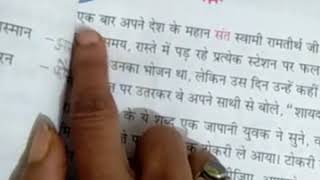 एक बार अपने देश के महान संत स्वामी रामतीर्थ जी
स्मान
समय, रास्ते में पड़ रहे प्रत्येक स्टेशन पर फल
रन
उनका भोजन था, लेकिन उस दिन उन्हें कहीं
पर उतरकर वे अपने साथी से बोले, “शायद
के ये शब्द एक जापानी युवक ने सुने, व
टोकरी ले आया। टोकरी